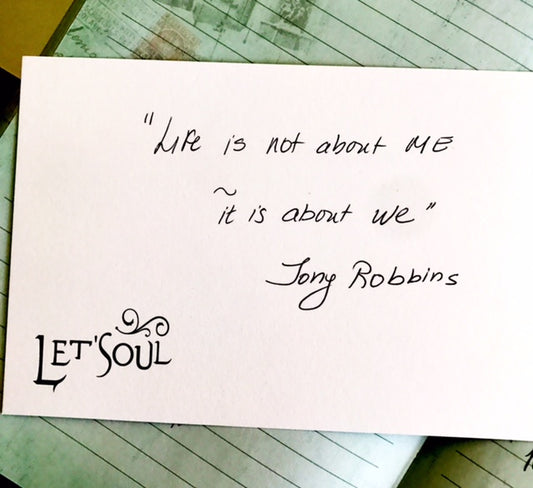 "Life is not about ME
~
it is about we"
Tony Robbins
LET'SOUL